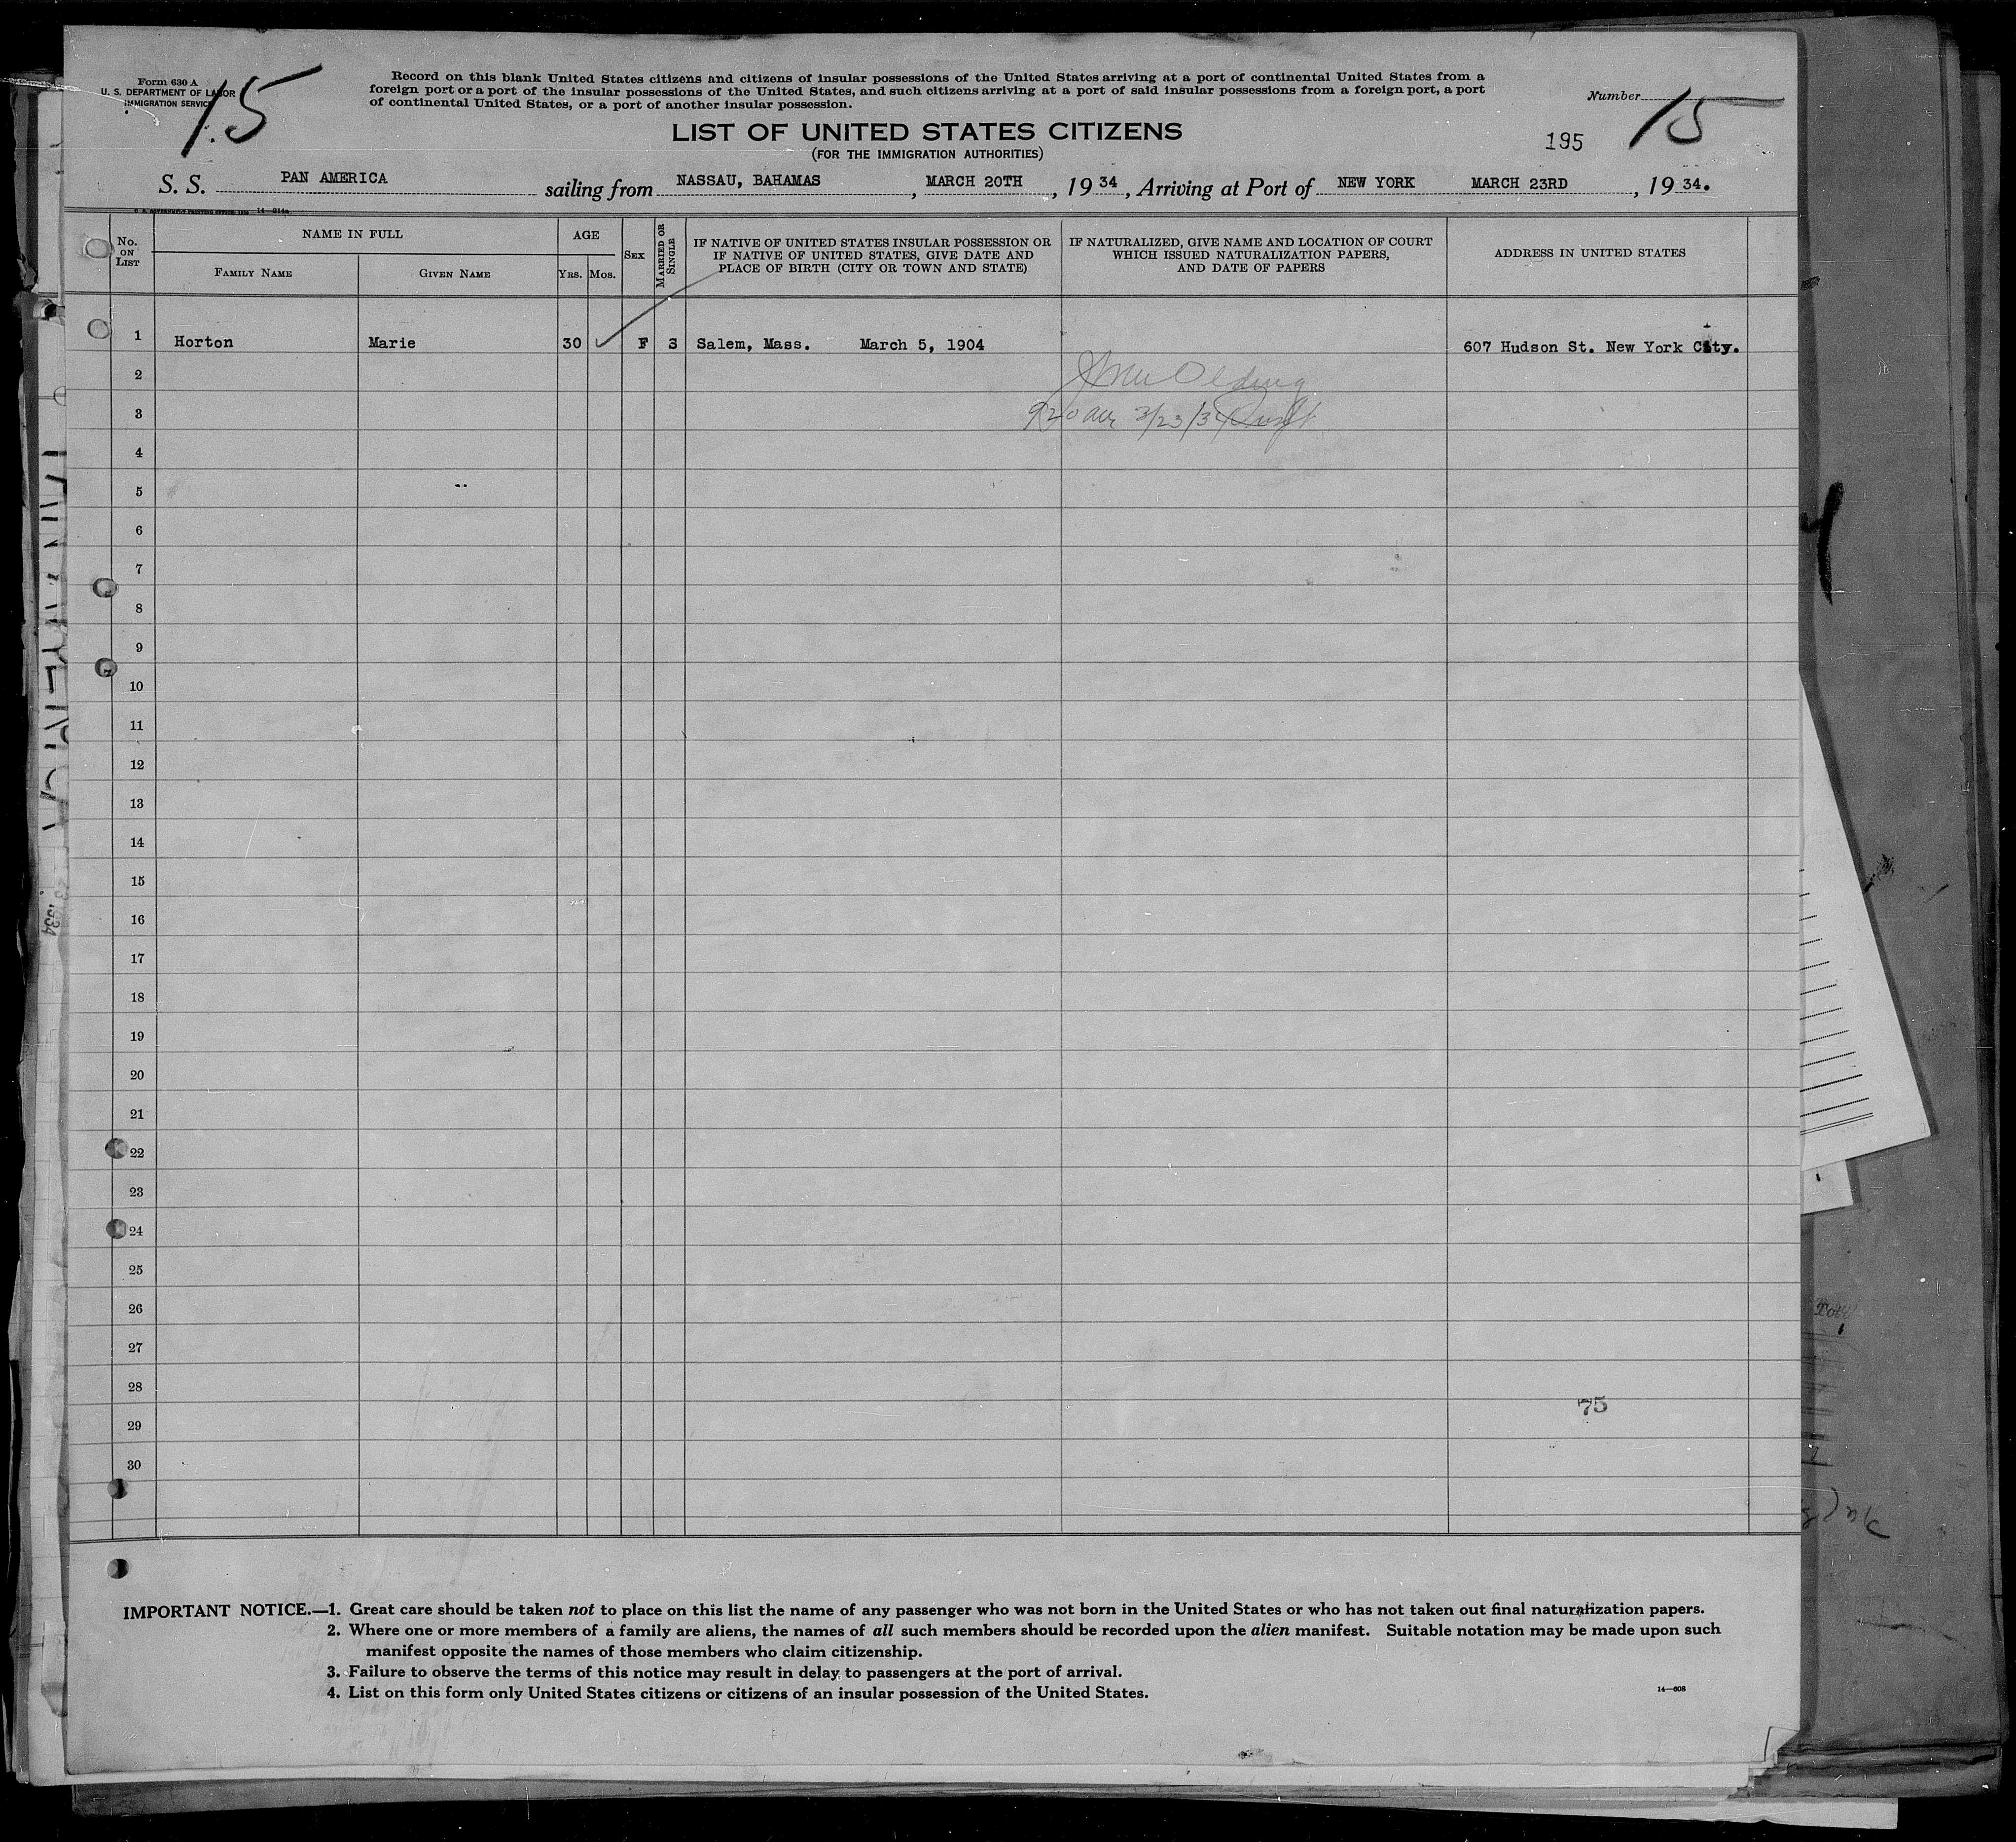 Form 630 A
U. S. DEPARTMENT OF LABOR
IMMIGRATION SERVICE
15
Record on this blank United States citizens and citizens of insular possessions of the United States arriving at a port of continental United States from a
foreign port or a port of the insular possessions of the United States, and such citizens arriving at a port of said insular possessions from a foreign port, a port
of continental United States, or a port of another insular possession.
Number 15
LIST OF UNITED STATES CITIZENS
(FOR THE IMMIGRATION AUTHORITIES)
195
S. S. PAN AMERICA sailing from NASSAU, BAHAMAS, MARCH 20TH, 1934, Arriving at Port of NEW YORK MARCH 23RD, 1934.
No. ON LIST
NAME IN FULL
FAMILY NAME
GIVEN NAME
AGE
YRS. MOS.
SEX
MARRIED OR SINGLE
IF NATIVE OF UNITED STATES INSULAR POSSESSION OR
IF NATIVE OF UNITED STATES, GIVE DATE AND
PLACE OF BIRTH (CITY OR TOWN AND STATE)
IF NATURALIZED, GIVE NAME AND LOCATION OF COURT
WHICH ISSUED NATURALIZATION PAPERS,
AND DATE OF PAPERS
ADDRESS IN UNITED STATES
1 Horton Marie 30 F S Salem, Mass. March 5, 1904 607 Hudson St. New York City.
2
3 920 am 3/23/34
4
5
6
7
8
9
10
11
12
13
14
15
16
17
18
19
20
21
22
23
24
25
26
27
28
75
29
30
IMPORTANT NOTICE.—1. Great care should be taken not to place on this list the name of any passenger who was not born in the United States or who has not taken out final naturalization papers.
2. Where one or more members of a family are aliens, the names of all such members should be recorded upon the alien manifest. Suitable notation may be made upon such
manifest opposite the names of those members who claim citizenship.
3. Failure to observe the terms of this notice may result in delay to passengers at the port of arrival.
4. List on this form only United States citizens or citizens of an insular possession of the United States.
14—608